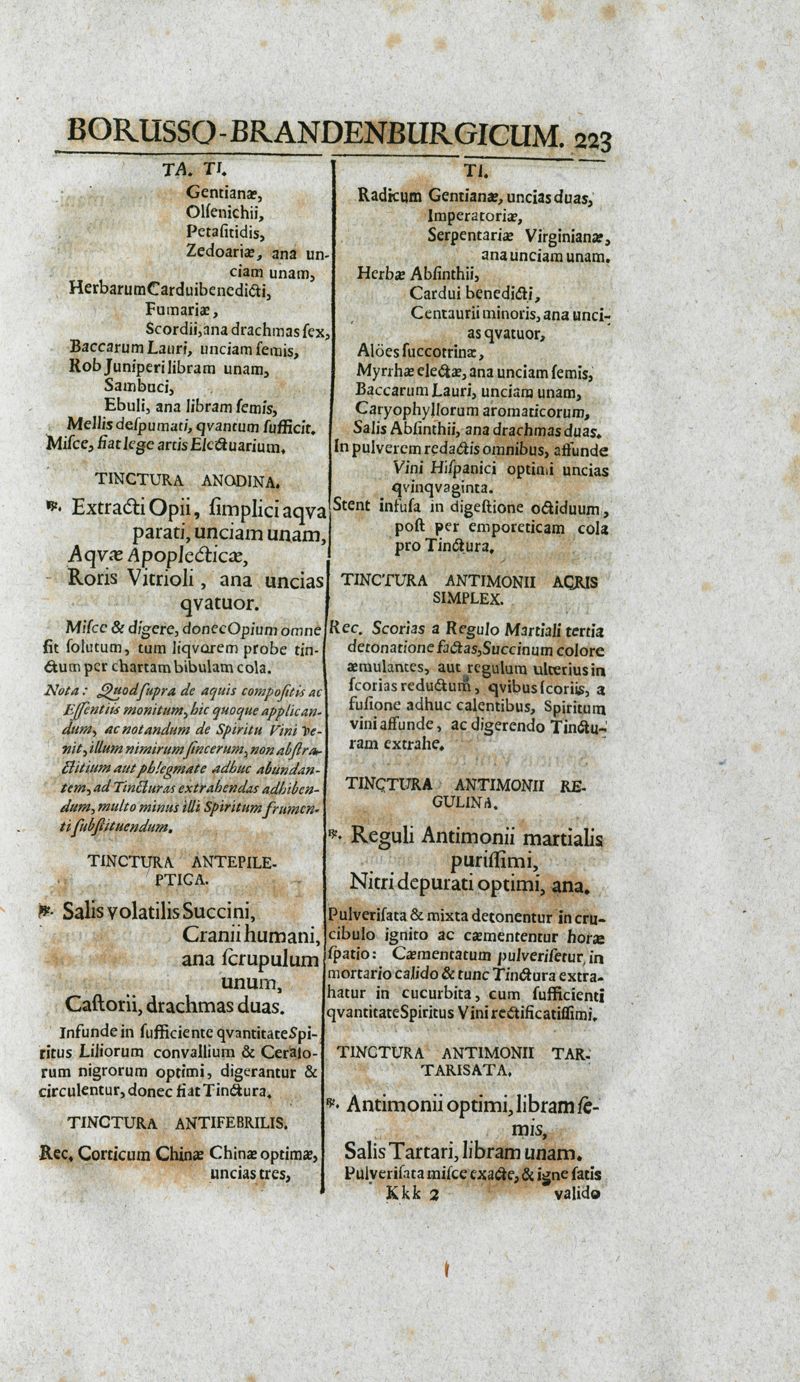 BORUSSO-BRANDENBURGICUM. 223
TA. TI.
Gentianæ,
Olſenichii,
Petaſitidis,
Zedoariæ, ana un-
ciam unam,
HerbarumCarduibenedicti,
Fumariæ,
Scordii,ana drachmas ſex,
Baccarum Lauri, unciam ſemis,
Rob Juniperi libram unam,
Sambuci,
Ebuli, ana libram ſemis,
Mellis deſpumati, qvantum ſufficit.
Miſce, fiat lege artis Electuarium.
TINCTURA ANODINA.
℞. Extracti Opii, ſimplici aqva
parati, unciam unam,
Aqvæ Apoplecticæ,
Roris Vitrioli, ana uncias
qvatuor.
Miſce & digere, donecOpium omne
ſit ſolutum, tum liqvorem probe tin-
ctum per chartam bibulam cola.
Nota: Quod ſupra de aquis compoſitis ac
Eſſentiis monitum, hic quoque applican-
dum, ac notandum de Spiritu Vini ve-
nit, illum nimirum ſincerum, non abſtra-
ctitium aut phlegmate adhuc abundan-
tem, ad Tincturas extrahendas adhiben-
dum, multo minus illi Spiritum frumen-
ti ſubſtituendum.
TINCTURA ANTEPILE-
PTICA.
℞. Salis volatilis Succini,
Cranii humani,
ana ſcrupulum
unum,
Caſtorii, drachmas duas.
Infunde in ſufficiente qvantitateSpi-
ritus Liliorum convallium & Ceraſo-
rum nigrorum optimi, digerantur &
circulentur, donec fiat Tinctura.
TINCTURA ANTIFEBRILIS.
Rec. Corticum Chinæ Chinæ optimæ,
uncias tres,
TI.
Radicum Gentianæ, uncias duas,
Imperatoriæ,
Serpentariæ Virginianæ,
ana unciam unam.
Herbæ Abſinthii,
Cardui benedicti,
Centaurii minoris, ana unci-
as qvatuor,
Aloes ſuccotrinæ,
Myrrhæ electæ, ana unciam ſemis,
Baccarum Lauri, unciam unam,
Caryophyllorum aromaticorum,
Salis Abſinthii, ana drachmas duas.
In pulverem redactis omnibus, affunde
Vini Hiſpanici optimi uncias
qvinqvaginta.
Stent infuſa in digeſtione octiduum,
poſt per emporeticam cola
pro Tinctura.
TINCTURA ANTIMONII ACRIS
SIMPLEX.
Rec. Scorias a Regulo Martiali tertia
detonatione factas,Succinum colore
æmulantes, aut regulum ulterius in
ſcorias reductum, qvibus ſcoriis, a
fuſione adhuc calentibus, Spiritum
vini affunde, ac digerendo Tinctu-
ram extrahe.
TINCTURA ANTIMONII RE-
GULINA.
℞. Reguli Antimonii martialis
puriſſimi,
Nitri depurati optimi, ana.
Pulveriſata & mixta detonentur in cru-
cibulo ignito ac cæmententur horæ
ſpatio: Cæmentatum pulveriſetur in
mortario calido & tunc Tinctura extra-
hatur in cucurbita, cum ſufficienti
qvantitate Spiritus Vini rectificatiſſimi.
TINCTURA ANTIMONII TAR-
TARISATA.
℞. Antimonii optimi, libram ſe-
mis,
Salis Tartari, libram unam.
Pulveriſata miſce exacte, & igne ſatis
Kkk 2 valido